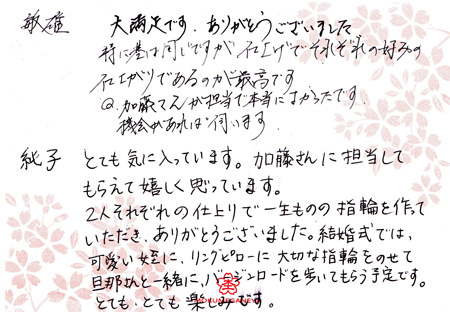 敏雄 大満足です。ありがとうございました
特に基は同じですが仕上げでそれぞれの好みの
仕上がりであるのが最高です
加藤さんが担当で本当によかったです。
機会があれば伺います。
純子 とても気に入っています。加藤さんに担当して
もらえて嬉しく思っています。
2人それぞれの仕上りで一生ものの指輪を作って
いただき、ありがとうございました。結婚式では、
可愛い姪に、リングピローに大切な指輪をのせて
旦那さんと一緒に、バージンロードを歩いてもらう予定です。
とても、とても楽しみです。